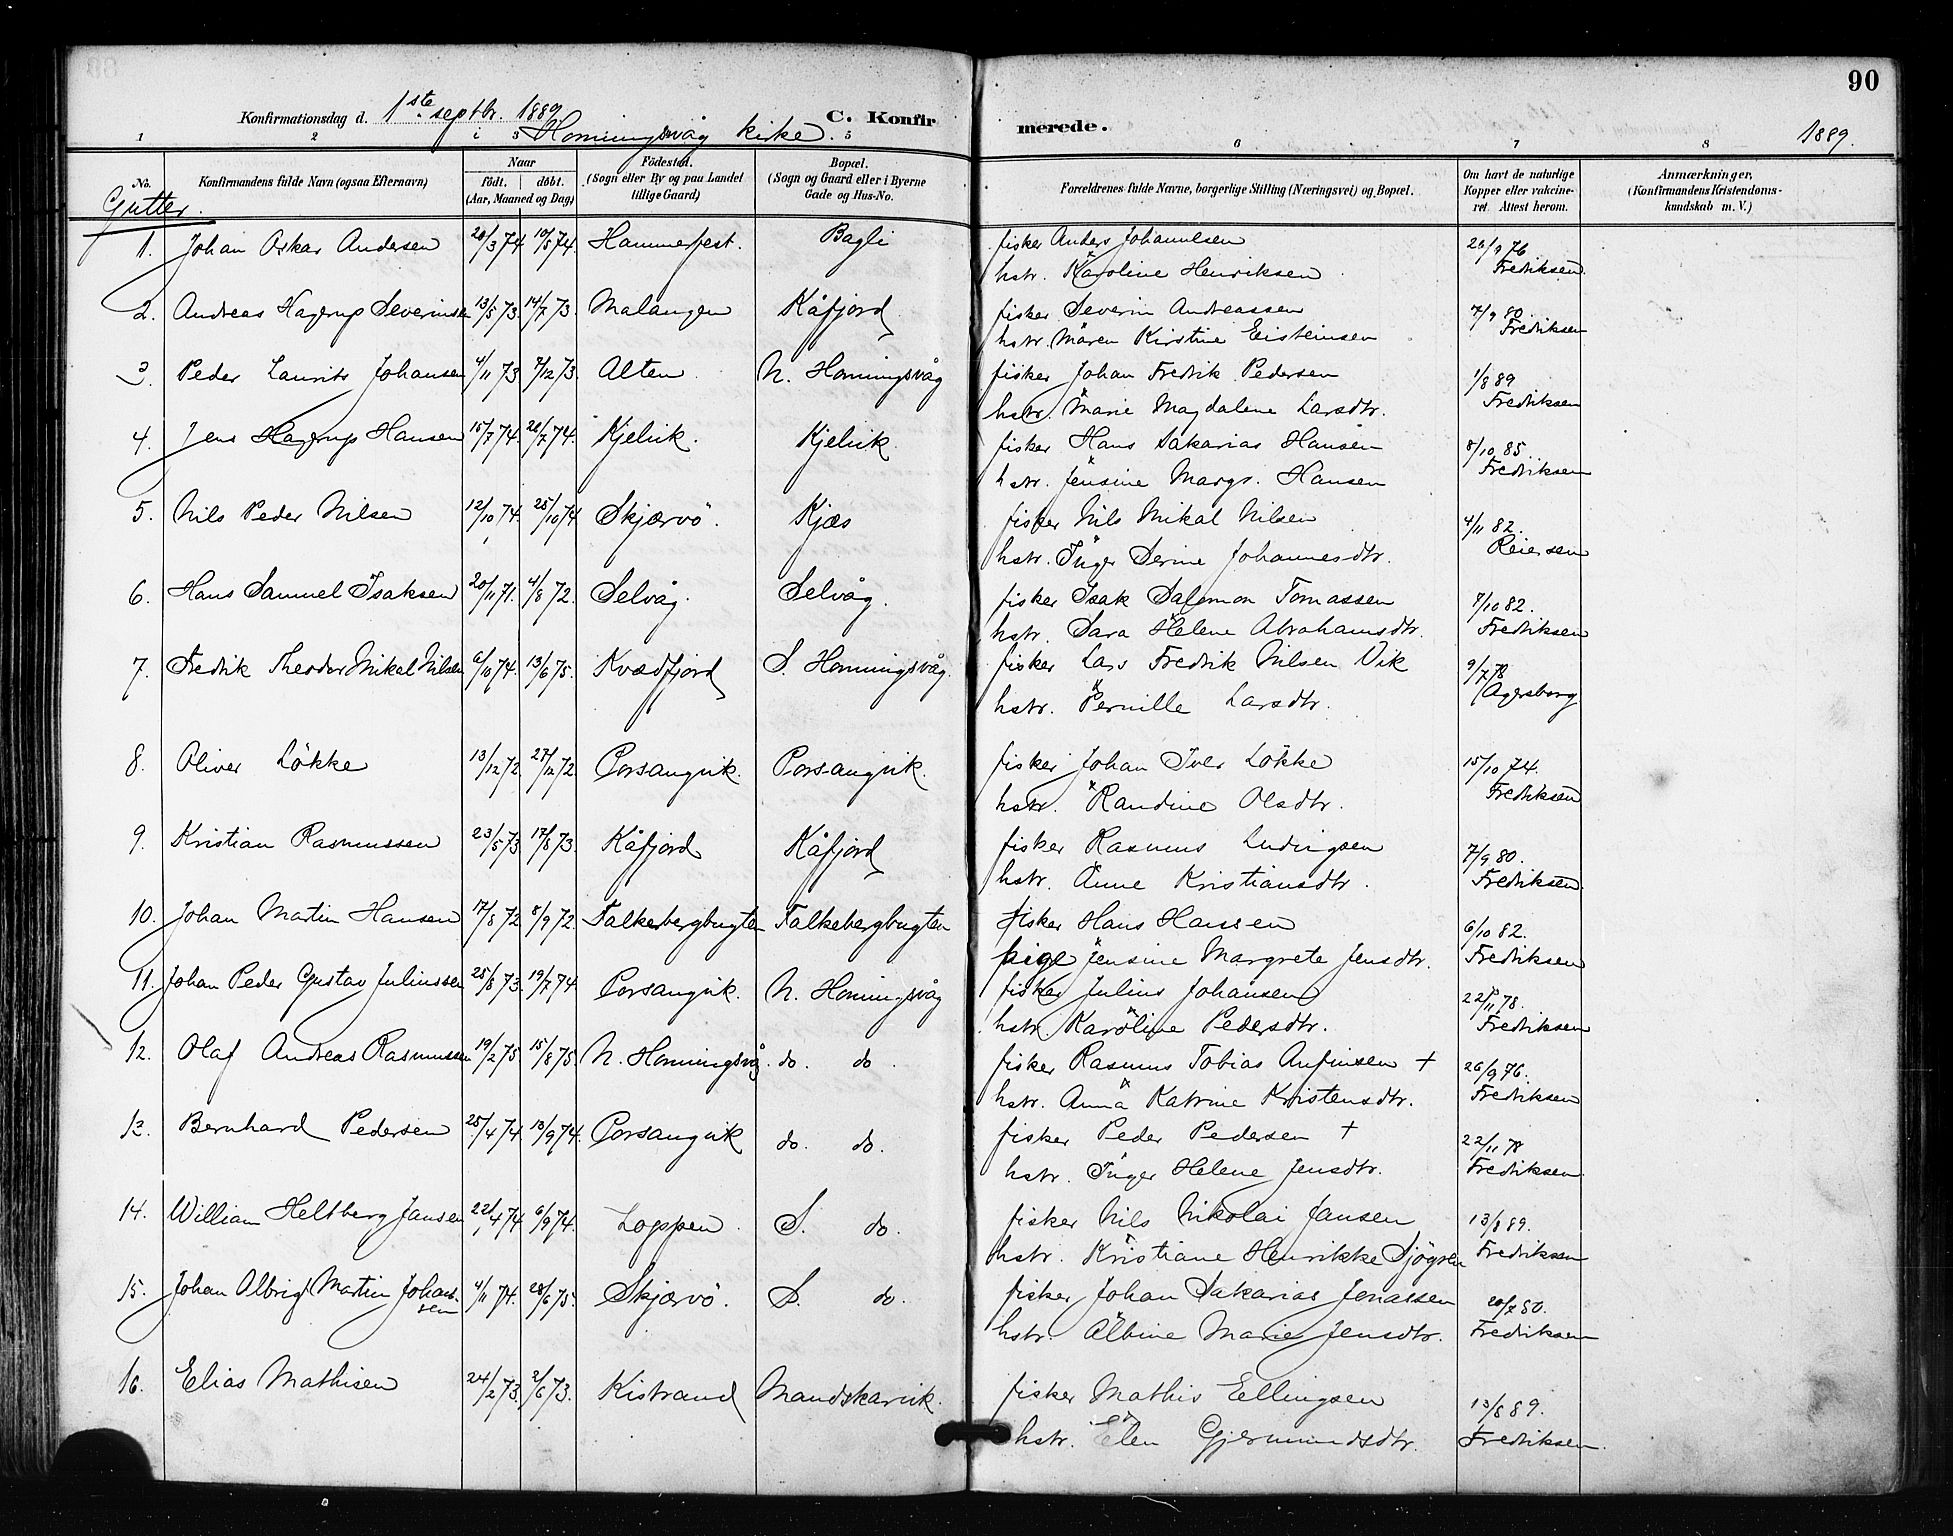 90
Konfirmationsdag d. 1ste septbr. 1889 C. Konfirmerede.
Honningsvåg kirke.
1889.
1 2 3 5 6 7 8
No. Konfirmandens fulde Navn (ogsaa Efternavn) Naar födt. döbt. (Aar, Maaned og Dag) Födested. (Sogn eller By og paa Landet tillige Gaard) Bopæl. (Sogn og Gaard eller i Byerne Gade og Hus-No. Forældrenes fulde Navne, borgerlige Stilling (Næringsvei) og Bopæl. Om havt de naturlige Kopper eller vakcineret. Attest herom. Anmærkninger, (Konfirmandens Kristendomskundskab m. V.)
Gutter.
1. Johan Oskar Andersen 20/3 74 10/5 74. Hammerfest. Bagli fisker Anders Johannesen 26/9 76
hstr. Karoline Henriksen Fredriksen
2. Andreas Hagerup Severinsen 13/5 73 14/7 73. Malangen Kåfjord fisker Severin Andreassen 7/9 80.
hstr. Maren Kirstine Eisteinsen Fredriksen
3. Peder Laurits Johansen 4/11 73 7/12 73. Alten N. Honningsvåg fisker Johan Fredrik Pedersen 1/8 89
hstr. Marie Magdalene Larsdtr. Fredriksen
4. Jens Hagerup Hansen 15/7 74. 26/7 74. Kjelvik. Kjelvik fisker Hans Sakarias Hansen 8/10 85.
hstr. Jensine Margr. Hansen Fredriksen
5. Nils Peder Nilsen 12/10 74. 25/10 74 Skjærvö. Kjæs fisker Nils Mikal Nilsen 4/11 82.
hstr. Inger Serine Johannesdtr. Reiersen
6. Hans Samuel Isaksen 20/11 71. 4/8 72. Selvåg. Selvåg. fisker Isak Salomon Tomassen 7/10 82.
hstr. Sara Helene Abrahamsdtr. Fredriksen
7. Fredrik Theodor Mikal Nilsen 6/10 74. 13/6 75. Kvædfjord S. Honningsvåg. fisker Lars Fredrik Nilsen Vik 9/7 78
hstr. Pernille Larsdtr. Agersborg
8. Oliver Lökke 13/12 72. 27/12 72 Porsangvik. Porsangvik. fisker Johan Iver Lökke 15/10 74.
hstr. Randine Olsdtr. Fredriksen
9. Kristian Rasmussen 23/5 73 17/8 73. Kåfjord Kåfjord fisker Rasmus Ludvigsen 7/9 80.
hstr. Anne Kristiansdtr. Fredriksen.
10. Johan Martin Hansen 17/8 72 8/9 72. Falkebergbugten Falkebergbugten fisker Hans Hansen 6/10 82.
pige Jensine Margrete Jensdtr. Fredriksen
11. Johan Peder Gustav Juliussen 25/8 73. 19/7 74 Porsangvik. N. Honningsvåg fisker Julius Johansen 22/11 78.
hstr. Karoline Pedersdtr. Fredriksen
12. Olaf Andreas Rasmussen 19/2 75 15/8 75. N. Honningsvåg. do. do. fisker Rasmus Tobias Anfinsen + 26/9 76.
hstr. Anna Katrine Kristensdtr. Fredriksen
13. Bernhard Pedersen 25/4 74 13/9 74. Porsangvik do. do. fisker Peder Pedersen + 22/11 78
hstr. Inger Helene Jensdtr. Fredriksen
14. William Heltberg Jansen 22/4 74 6/9 74. Loppen S. do. fisker Nils Nikolai Jansen 13/8 89.
hstr. Kristiane Henrikke Sjögren Fredriksen
15. Johan Albrigt Martin Johansen 4/11 74. 28/6 75. Skjærvö. S. do. fisker Johan Sakarias Jonassen 80.
hstr. Albine Marie Jensdtr. Fredriksen
16. Elias Mathisen 24/2 73. 2/6 73. Kistrand Mandskarvik. fisker Mathis Ellingsen 13/8 89.
hstr. Elen Gjermundsdtr. Fredriksen.